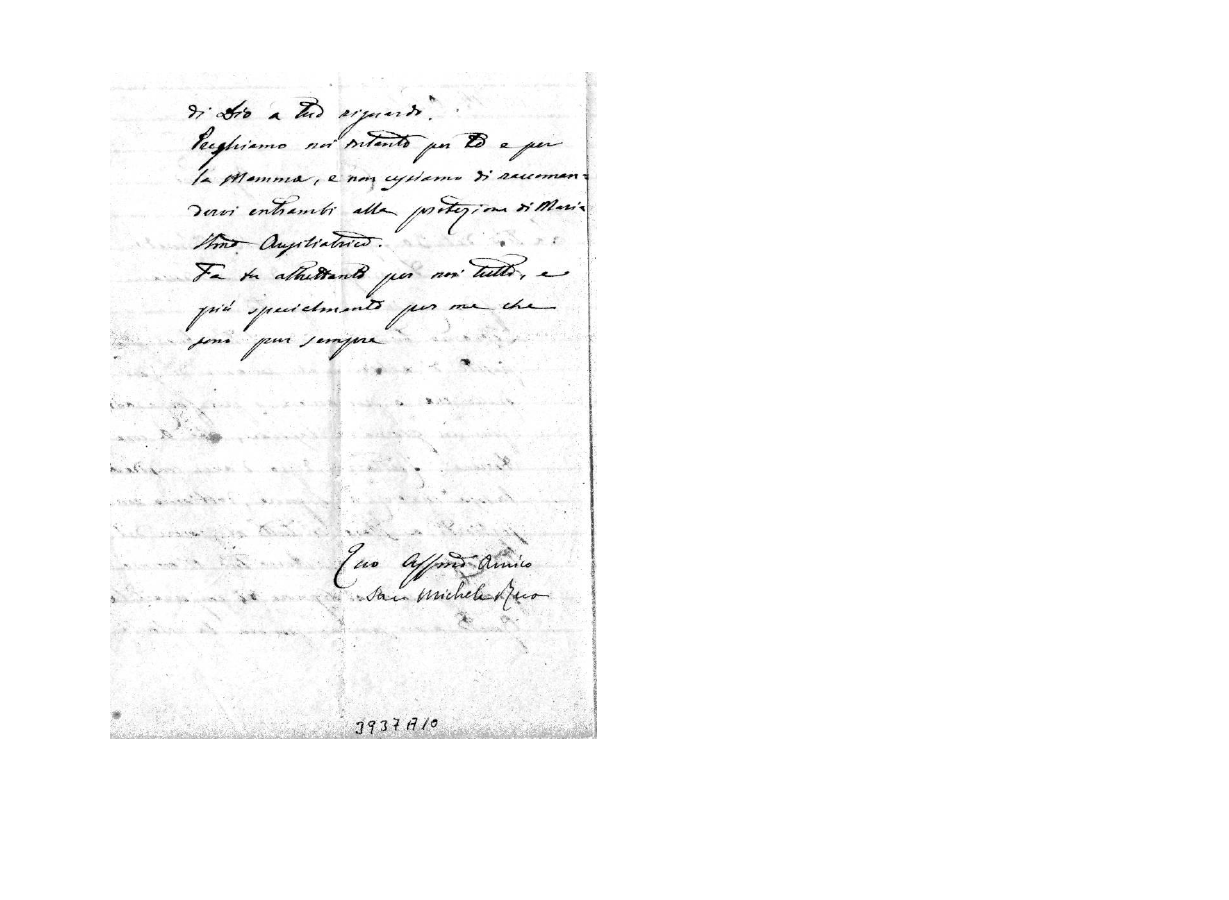 di Dio a tuo riguardo.
Preghiamo noi intanto per te e per
la Mamma, e non cessiamo di raccoman=
darvi entrambi alla protezione di Maria
SSma Ausiliatrice.
Fa tu altrettanto per noi tutti, e
più specialmente per me che
sono pur sempre
Tuo Affmo Amico
Sac Michele Rua
3937A10